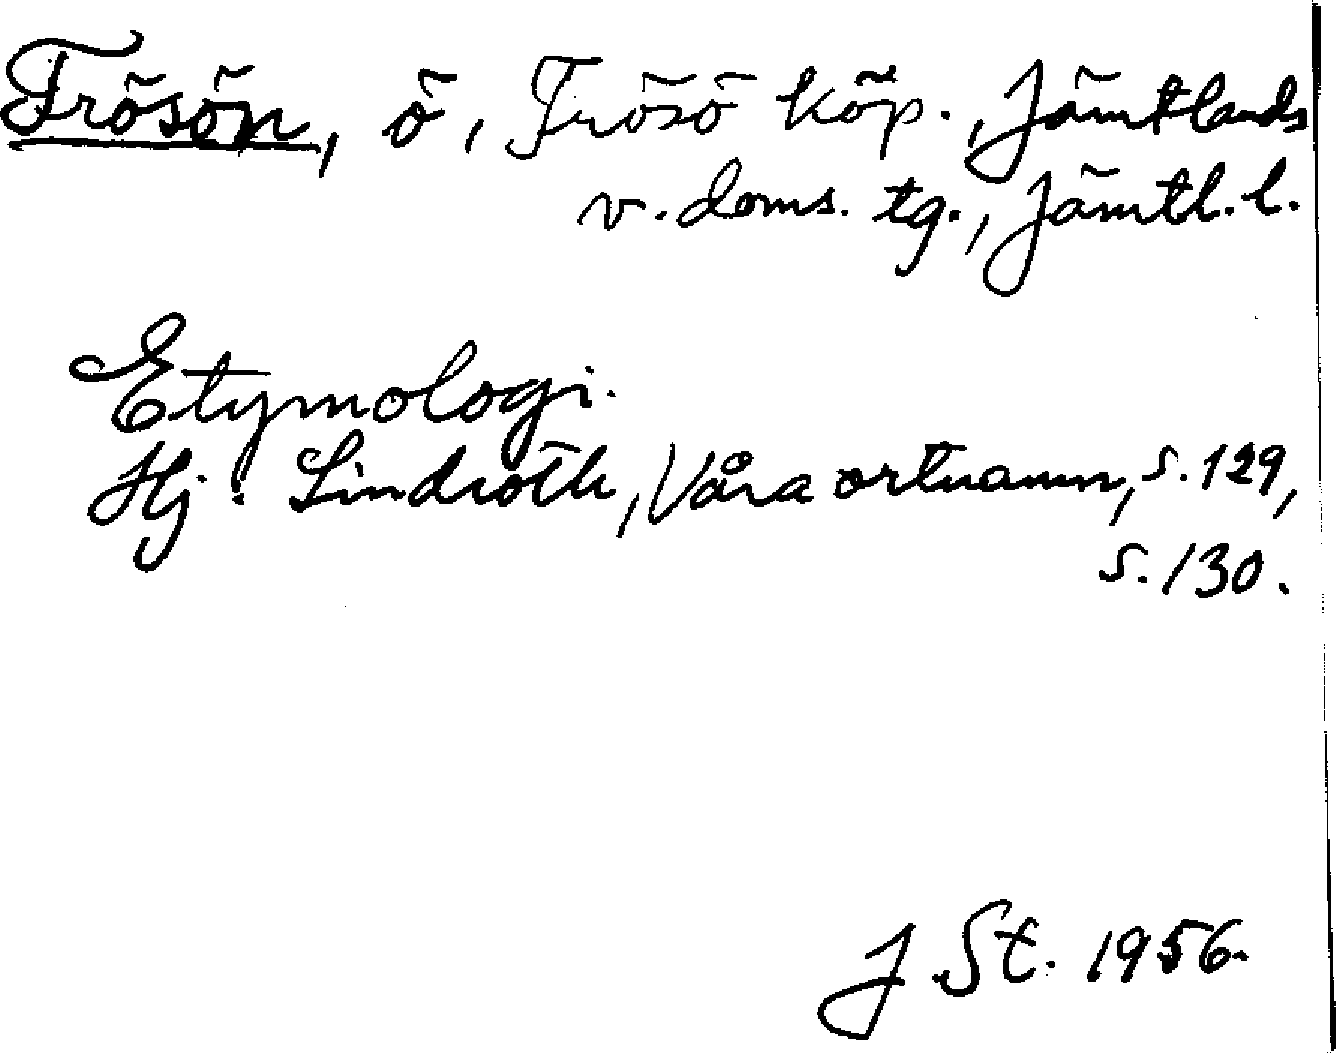 Frösön, ö, Frösö köp., Jämtlands
v. doms. tg., Jämtl. l.
Etymologi.
Hj. Lindroth, Våra ortnamn, s. 129,
s. 130.
J St. 1956.